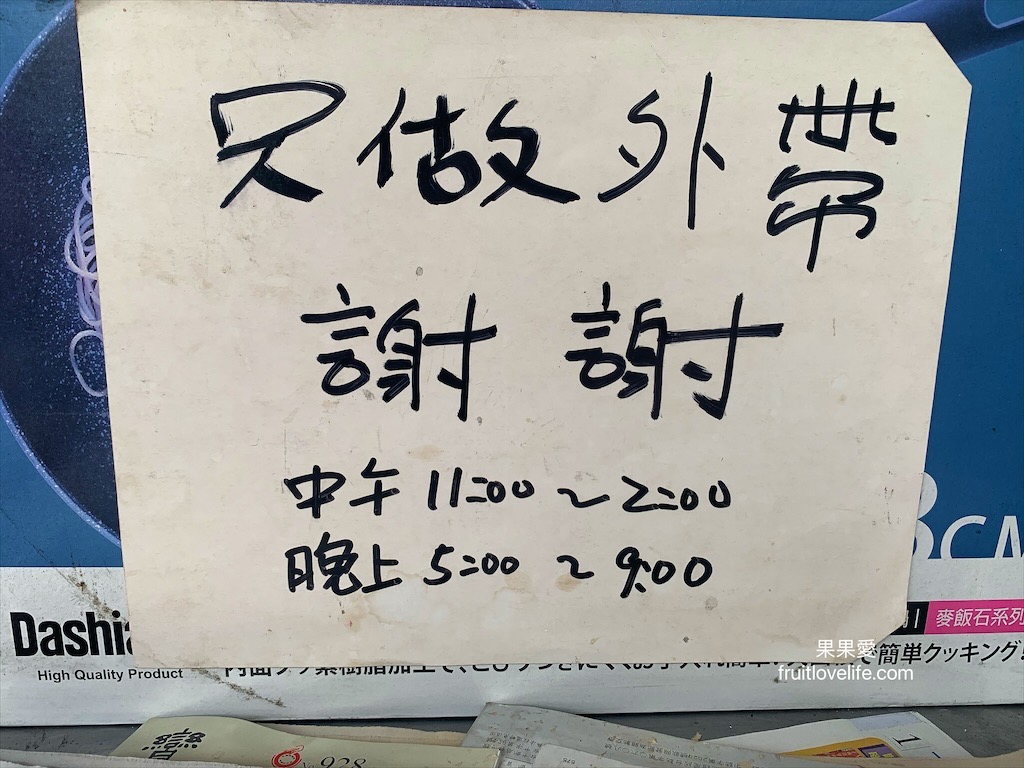 只做外帶
謝謝
中午 11:00 ~ 2:00
晚上 5:00 ~ 9:00
麥飯石系列
Dashia
で簡単クッキング!
High Quality Product
果果愛
fruitlovelife.com
1
No 928